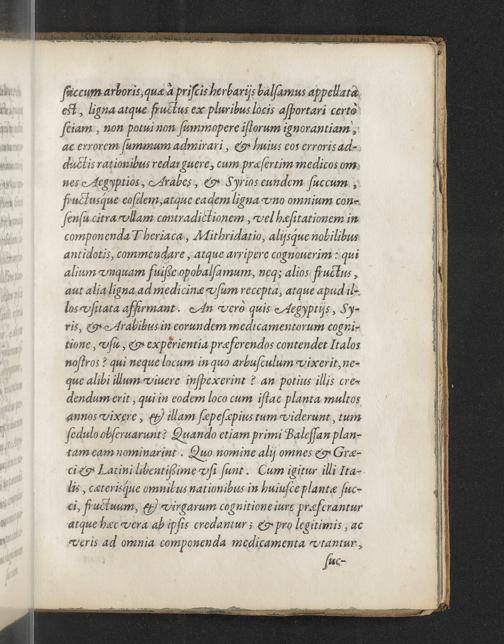 succum arboris, quæ à priscis herbarijs balsamus appellata
est, ligna atque fructus ex pluribus locis asportari certò
sciam, non potui non summopere istorum ignorantiam,
ac errorem summum admirari, & huius eos erroris ad-
ductis rationibus redarguere, cum præsertim medicos om
nes Aegyptios, Arabes, & Syrios eundem succum,
fructusque eosdem, atque eadem ligna vno omnium con-
sensu citra vllam contradictionem, vel hæsitationem in
componenda Theriaca, Mithridatio, alijsque nobilibus
antidotis, commendare, atque arripere cognouerim: qui
alium vnquam fuisse opobalsamum, neq; alios fructus,
aut alia ligna ad medicinæ vsum recepta, atque apud il-
los vsitata affirmant. An verò quis Aegyptijs, Sy-
ris, & Arabibus in eorundem medicamentorum cogni-
tione, vsu, & experientia præferendos contendet Italos
nostros? qui neque locum in quo arbusculum vixerit, ne-
que alibi illum viuere inspexerint? an potius illis cre-
dendum erit, qui in eodem loco cum istac planta multos
annos vixere, & illam sæpesæpius tum viderunt, tum
sedulo obseruarunt? Quando etiam primi Balessan plan-
tam eam nominarint. Quo nomine alij omnes & Græ-
ci & Latini libentissime vsi sunt. Cum igitur illi Ita-
lis, cæterisque omnibus nationibus in huiusce plantæ suc-
ci, fructuum, & virgarum cognitione iure præferantur
atque hæc vera ab ipsis credantur; & pro legitimis, ac
veris ad omnia componenda medicamenta vtantur,
suc-